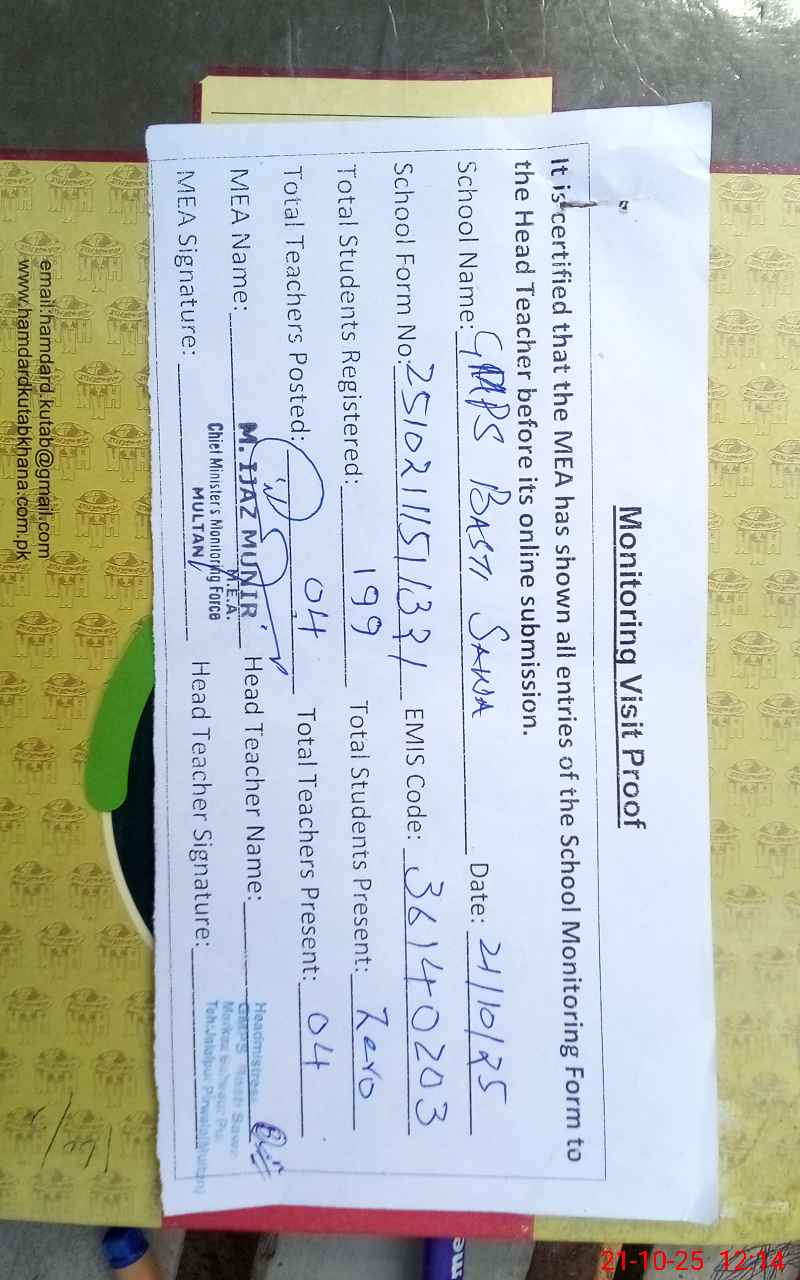 Monitoring Visit Proof
It is certified that the MEA has shown all entries of the School Monitoring Form to
the Head Teacher before its online submission.
School Name: GMPS BASTI SAWA Date: 21/10/25
School Form No: EMIS Code: 36140203
Total Students Registered: 199 Total Students Present: Zero
Total Teachers Posted: 04 Total Teachers Present: 04
MEA Name: M. IJAZ MUNIR Head Teacher Name:
M.E.A.
Chief Minister's Monitoring Force
MULTAN
MEA Signature: Head Teacher Signature:
Headmistress
GMPS Basti Sawa
Teh:Jalalpur Pirwala(Multan)
email:hamdard.kutab@gmail.com
www.hamdardkutabkhana.com.pk
21-10-25 12:14